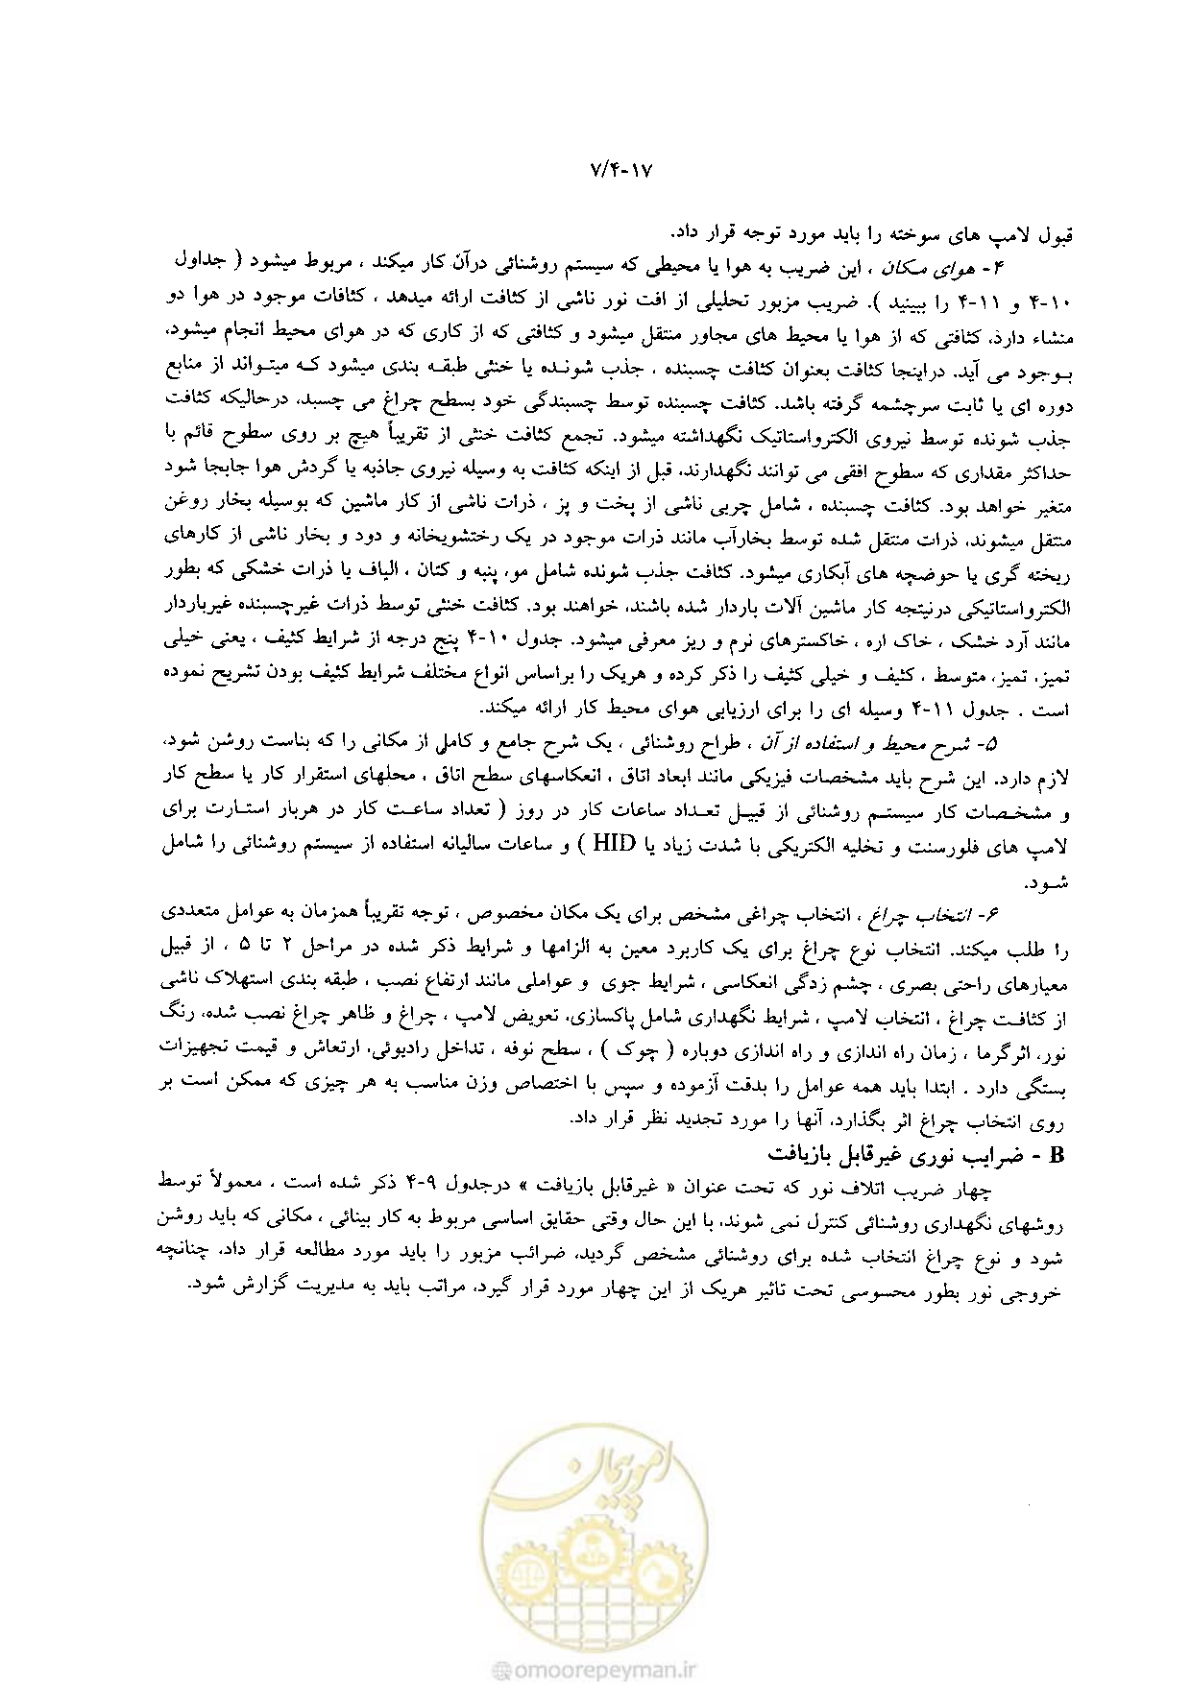 ۷/۴-۱۷
قبول لامپ های سوخته را باید مورد توجه قرار داد.
۴- هوای مکان ، این ضریب به هوا یا محیطی که سیستم روشنائی درآن کار میکند ، مربوط میشود ( جداول
۴-۱۰ و ۴-۱۱ را ببینید ). ضریب مزبور تحلیلی از افت نور ناشی از کثافت ارائه میدهد ، کثافات موجود در هوا دو
منشاء دارد، کثافتی که از هوا یا محیط های مجاور منتقل میشود و کثافتی که از کاری که در هوای محیط انجام میشود،
بوجود می آید. دراینجا کثافت بعنوان کثافت چسبنده ، جذب شونده یا خنثی طبقه بندی میشود که میتواند از منابع
دوره ای یا ثابت سرچشمه گرفته باشد. کثافت چسبنده توسط چسبندگی خود بسطح چراغ می چسبد، درحالیکه کثافت
جذب شونده توسط نیروی الکترواستاتیک نگهداشته میشود. تجمع کثافت خنثی از تقریباً هیچ بر روی سطوح قائم با
حداکثر مقداری که سطوح افقی می توانند نگهدارند، قبل از اینکه کثافت به وسیله نیروی جاذبه یا گردش هوا جابجا شود
متغیر خواهد بود. کثافت چسبنده ، شامل چربی ناشی از پخت و پز ، ذرات ناشی از کار ماشین که بوسیله بخار روغن
منتقل میشوند، ذرات منتقل شده توسط بخارآب مانند ذرات موجود در یک رختشویخانه و دود و بخار ناشی از کارهای
ریخته گری یا حوضچه های آبکاری میشود. کثافت جذب شونده شامل مو، پنبه و کتان ، الیاف یا ذرات خشکی که بطور
الکترواستاتیکی درنیتجه کار ماشین آلات باردار شده باشند، خواهند بود. کثافت خنثی توسط ذرات غیرچسبنده غیرباردار
مانند آرد خشک ، خاک اره ، خاکسترهای نرم و ریز معرفی میشود. جدول ۴-۱۰ پنج درجه از شرایط کثیف ، یعنی خیلی
تمیز، تمیز، متوسط ، کثیف و خیلی کثیف را ذکر کرده و هریک را براساس انواع مختلف شرایط کثیف بودن تشریح نموده
است . جدول ۴-۱۱ وسیله ای را برای ارزیابی هوای محیط کار ارائه میکند.
۵- شرح محیط و استفاده از آن ، طراح روشنائی ، یک شرح جامع و کامل از مکانی را که بناست روشن شود،
لازم دارد. این شرح باید مشخصات فیزیکی مانند ابعاد اتاق ، انعکاسهای سطح اتاق ، محلهای استقرار کار یا سطح کار
و مشخصات کار سیستم روشنائی از قبیل تعداد ساعات کار در روز ( تعداد ساعت کار در هربار استارت برای
لامپ های فلورسنت و تخلیه الکتریکی با شدت زیاد یا HID ) و ساعات سالیانه استفاده از سیستم روشنائی را شامل
شود.
۶- انتخاب چراغ ، انتخاب چراغی مشخص برای یک مکان مخصوص ، توجه تقریباً همزمان به عوامل متعددی
را طلب میکند. انتخاب نوع چراغ برای یک کاربرد معین به الزامها و شرایط ذکر شده در مراحل ۲ تا ۵ ، از قبیل
معیارهای راحتی بصری ، چشم زدگی انعکاسی ، شرایط جوی و عواملی مانند ارتفاع نصب ، طبقه بندی استهلاک ناشی
از کثافت چراغ ، انتخاب لامپ ، شرایط نگهداری شامل پاکسازی، تعویض لامپ ، چراغ و ظاهر چراغ نصب شده، رنگ
نور، اثرگرما ، زمان راه اندازی و راه اندازی دوباره ( چوک ) ، سطح نوفه ، تداخل رادیوئی، ارتعاش و قیمت تجهیزات
بستگی دارد . ابتدا باید همه عوامل را بدقت آزموده و سپس با اختصاص وزن مناسب به هر چیزی که ممکن است بر
روی انتخاب چراغ اثر بگذارد، آنها را مورد تجدید نظر قرار داد.
B - ضرایب نوری غیرقابل بازیافت
چهار ضریب اتلاف نور که تحت عنوان « غیرقابل بازیافت » درجدول ۴-۹ ذکر شده است ، معمولاً توسط
روشهای نگهداری روشنائی کنترل نمی شوند، با این حال وقتی حقایق اساسی مربوط به کار بینائی ، مکانی که باید روشن
شود و نوع چراغ انتخاب شده برای روشنائی مشخص گردید، ضرائب مزبور را باید مورد مطالعه قرار داد، چنانچه
خروجی نور بطور محسوسی تحت تاثیر هریک از این چهار مورد قرار گیرد، مراتب باید به مدیریت گزارش شود.
امور پیمان
@omoorepeyman.ir